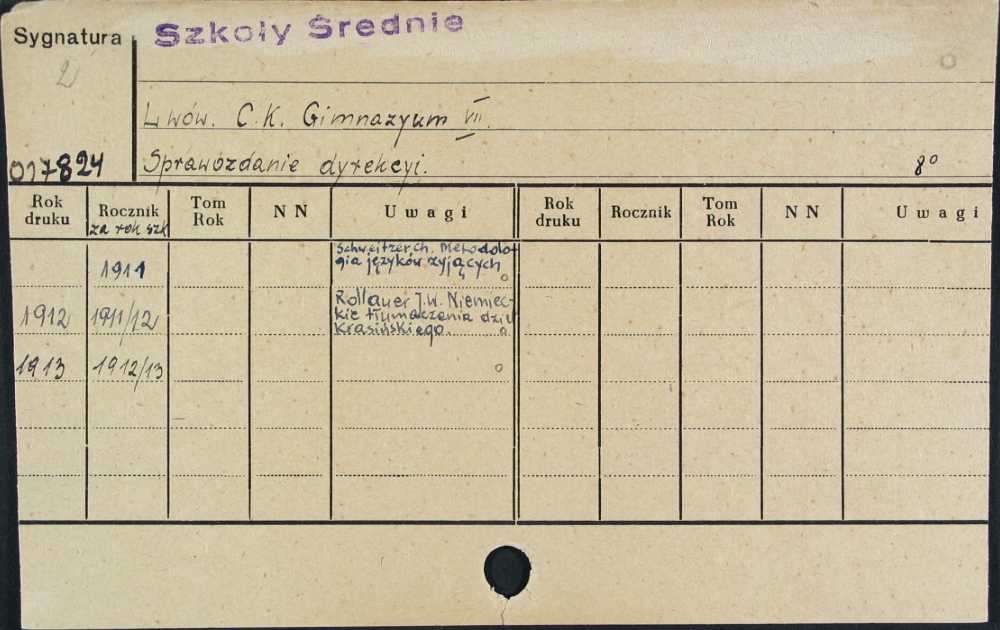 Sygnatura
Szkoły Średnie
2
Lwów. C.K. Gimnazyum VII.
017824
Sprawozdanie dyrekcyi.
8°
Rok druku
Rocznik
za rok szk
Tom Rok
NN
Uwagi
Rok druku
Rocznik
Tom Rok
NN
Uwagi
1911
Schweitzer Ch. Metodolo-
gia języków żyjących
1912 1911/12
Rollauer J.W. Niemiec-
kie tłumaczenia dzieł
Krasińskiego.
1913 1912/13